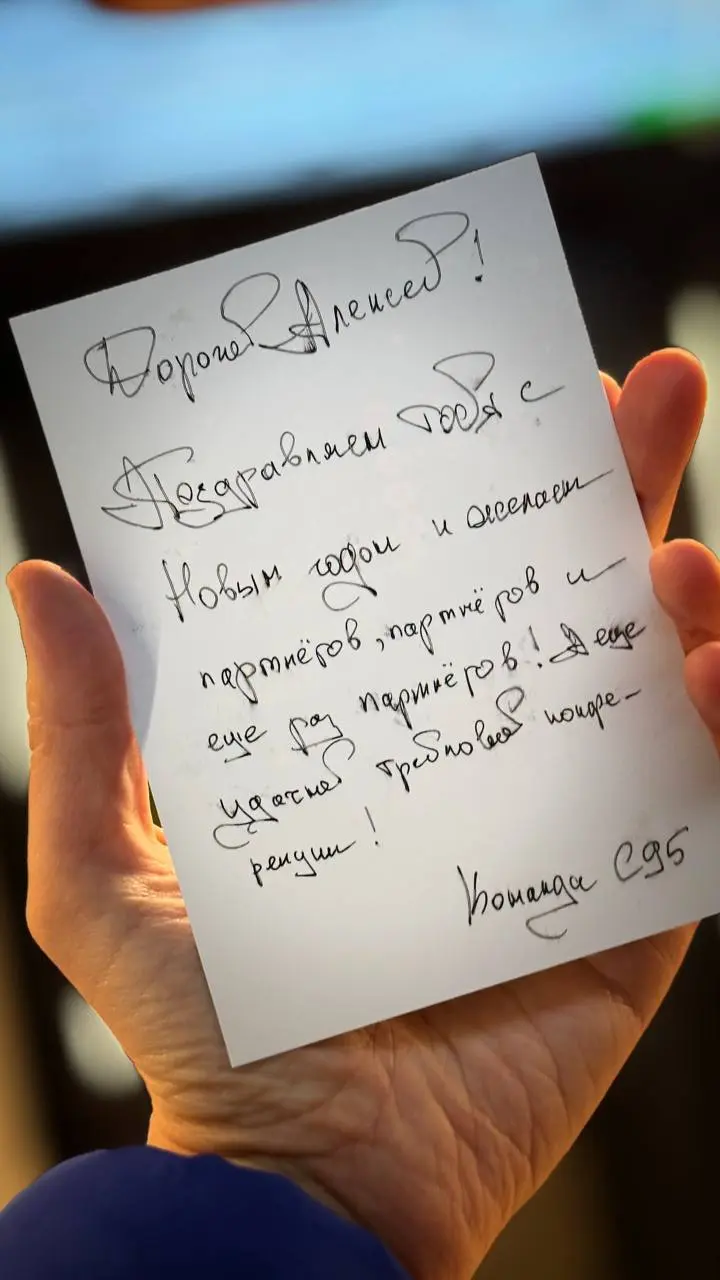 Дорогой Алексей!
Поздравляем тебя с
Новым годом и желаем
партнёров, партнёров и
еще раз партнёров! А еще
удачной требловой конфе-
ренции!
Команда С95